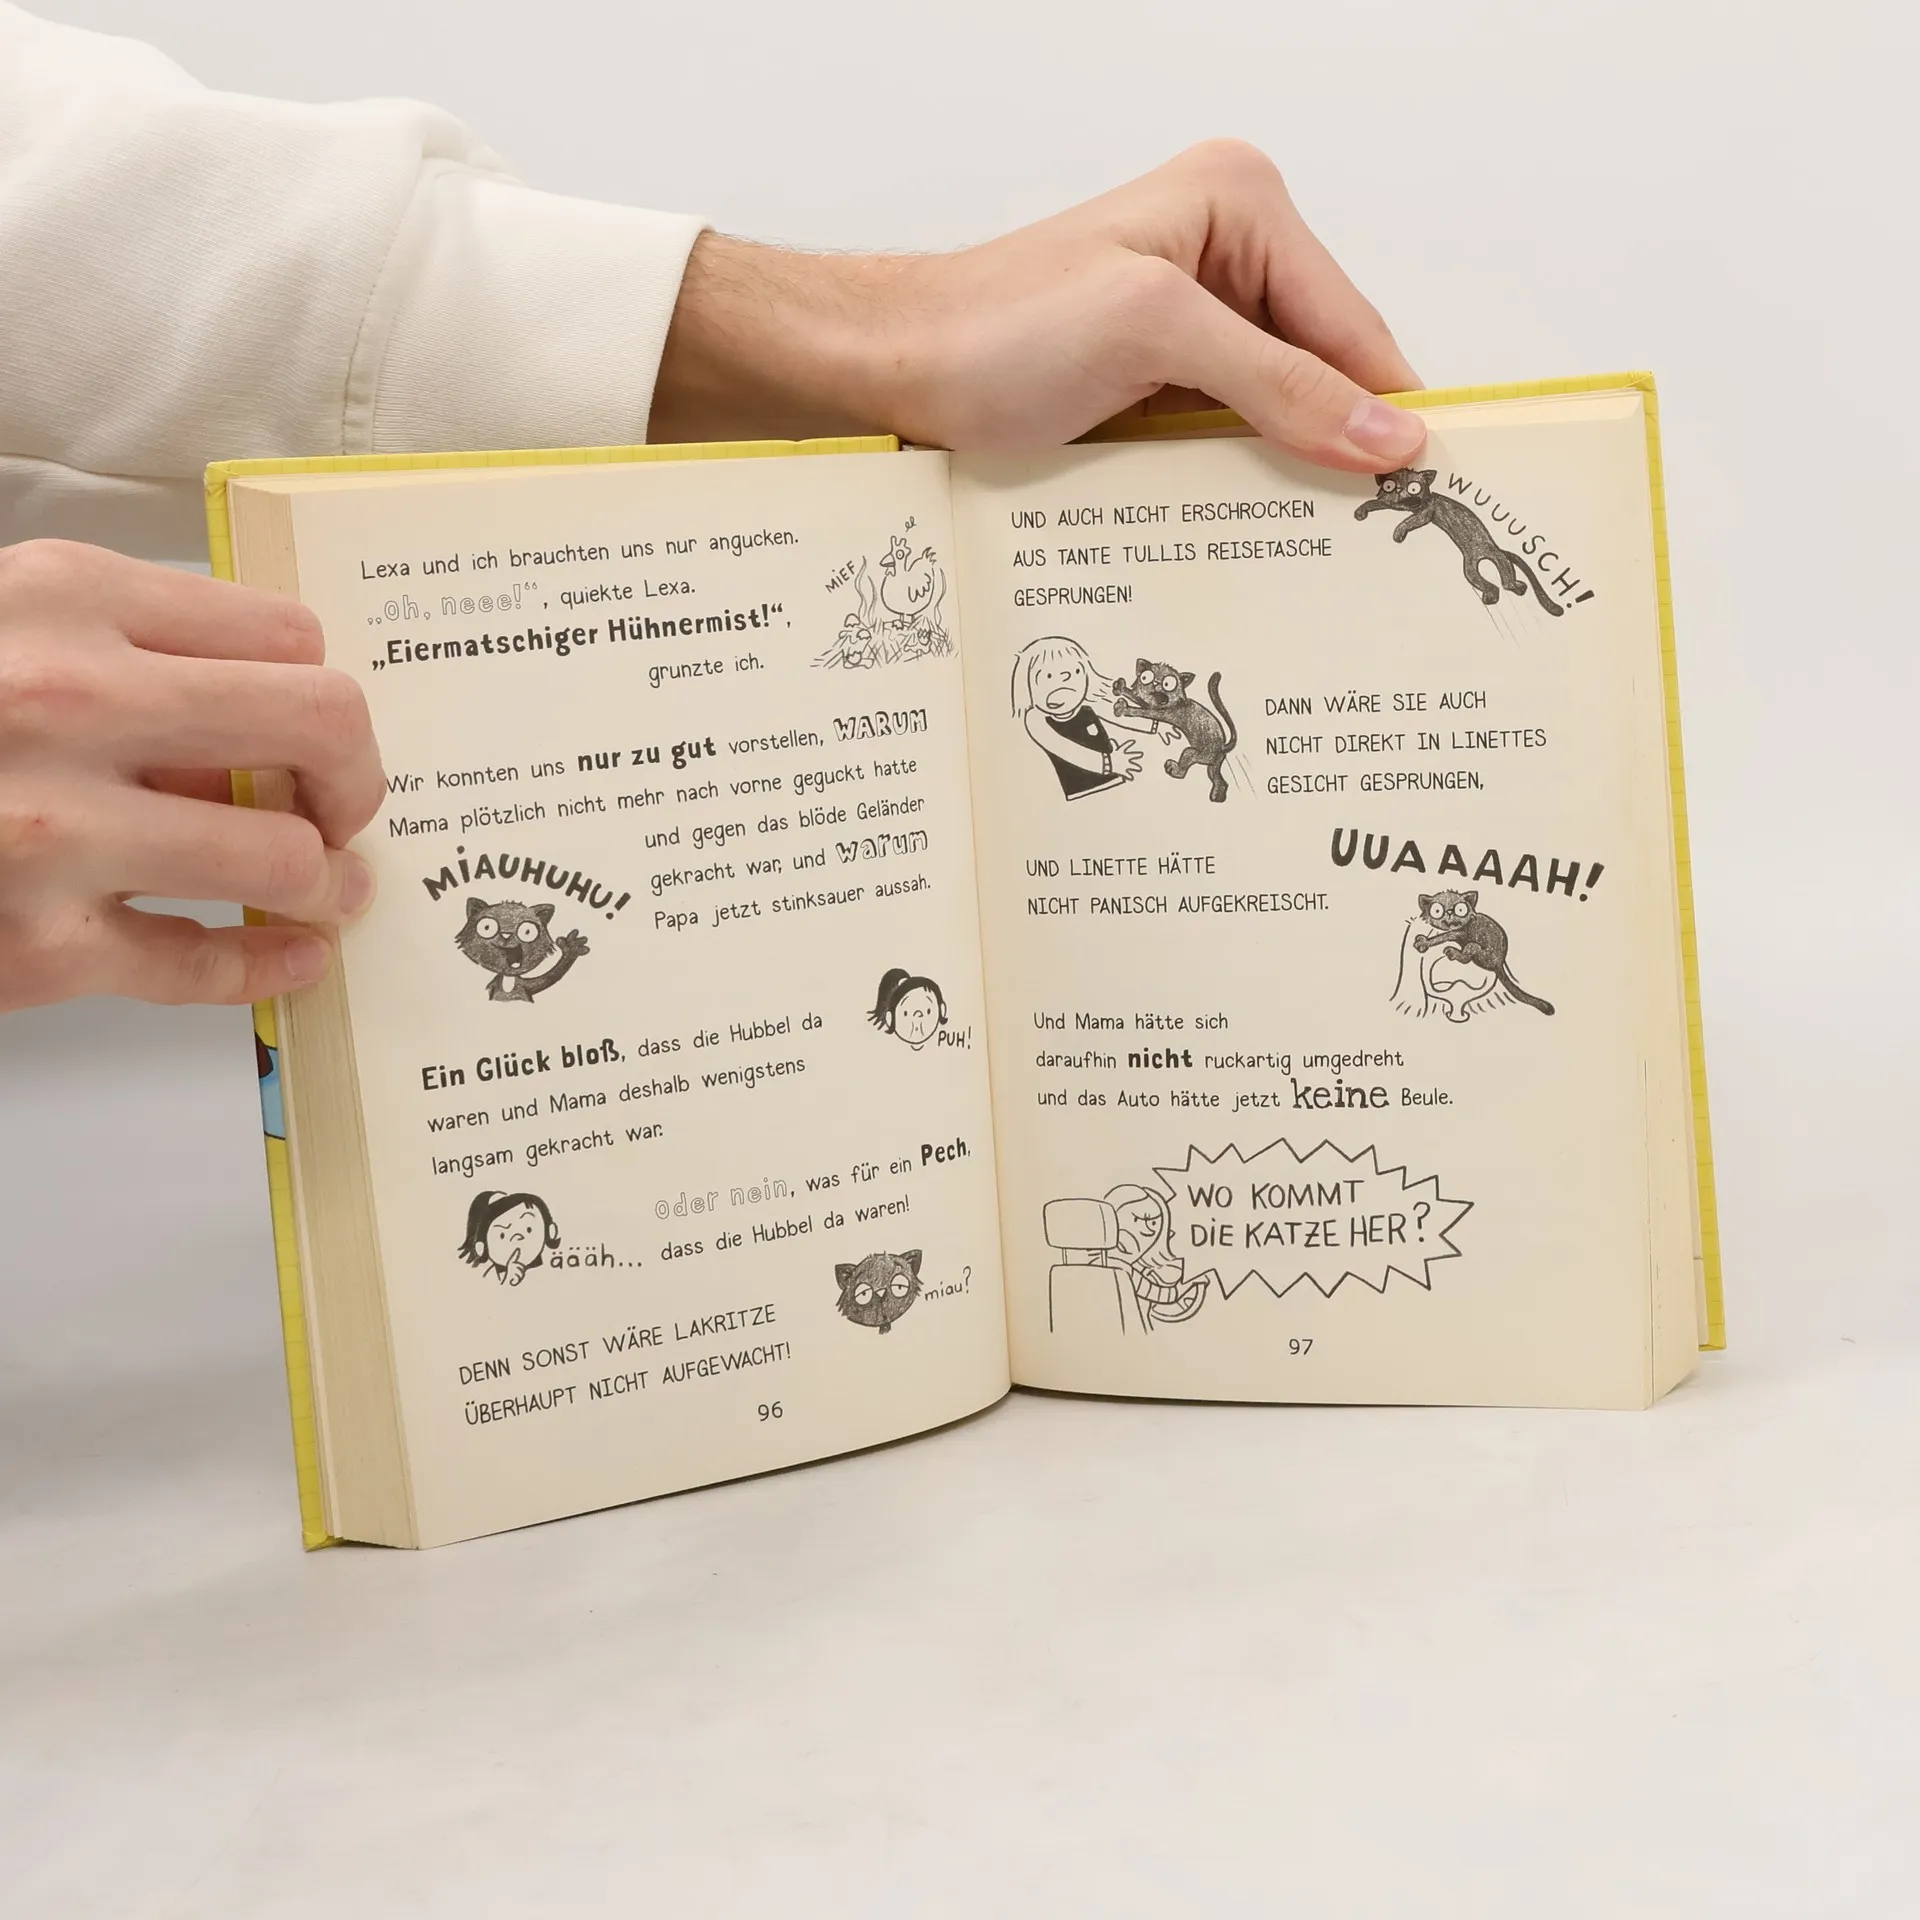 Lexa und ich brauchten uns nur angucken.
„Oh, neee!“, quiekte Lexa.
„Eiermatschiger Hühnermist!“,
grunzte ich.
MIEF
Wir konnten uns nur zu gut vorstellen, WARUM
Mama plötzlich nicht mehr nach vorne geguckt hatte
und gegen das blöde Geländer
gekracht war, und warum
Papa jetzt stinksauer aussah.
MIAUHUHU!
Ein Glück bloß, dass die Hubbel da
waren und Mama deshalb wenigstens
langsam gekracht war.
PUH!
oder nein, was für ein Pech,
dass die Hubbel da waren!
äääh...
miau?
DENN SONST WÄRE LAKRITZE
ÜBERHAUPT NICHT AUFGEWACHT!
96
UND AUCH NICHT ERSCHROCKEN
AUS TANTE TULLIS REISETASCHE
GESPRUNGEN!
WUUUSCH!
DANN WÄRE SIE AUCH
NICHT DIREKT IN LINETTES
GESICHT GESPRUNGEN,
UUAAAAH!
UND LINETTE HÄTTE
NICHT PANISCH AUFGEKREISCHT.
Und Mama hätte sich
daraufhin nicht ruckartig umgedreht
und das Auto hätte jetzt keine Beule.
WO KOMMT
DIE KATZE HER?
97